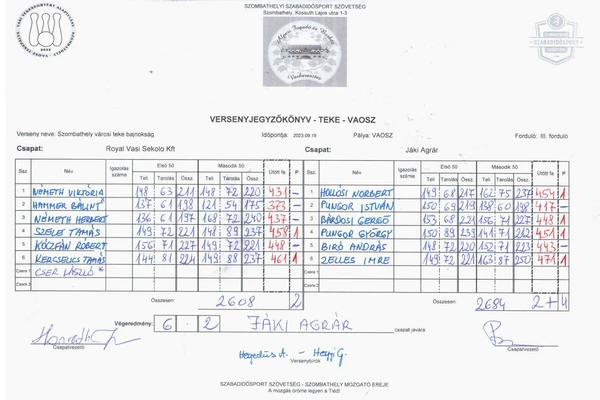 SZOMBATHELYI SZABADIDŐSPORT SZÖVETSÉG
Szombathely, Kossuth Lajos utca 1-3
SZABADIDŐSPORT
VERSENYJEGYZŐKÖNYV - TEKE - VAOSZ
Verseny neve: Szombathelyi városi teke bajnokság Időpontja: 2023.09.19 Pálya: VAOSZ Forduló: III. forduló
Csapat: Royal Vasi Sekolo Kft Csapat: Jáki Agrár
Ssz. Név Igazolás száma Első 50 Második 50 Ütött fa P Ssz. Név Igazolás száma Első 50 Második 50 Ütött fa P
Teli Tarolás Össz Teli Tarolás Össz Teli Tarolás Össz Teli Tarolás Össz
1 NÉMETH VIKTÓRIA 148 63 211 148 72 220 431 - 1 HOLLÓSI NORBERT 149 68 217 162 75 237 454 1
2 HAMMER BÁLINT 137 61 198 121 54 175 373 - 2 PUNGOR ISTVÁN 150 69 219 138 60 198 417 -
3 NÉMETH HERBERT 136 61 197 168 72 240 437 - 3 BÁRDOSI GERGŐ 153 68 221 156 71 227 448 1
4 SZELE TAMÁS 149 72 221 148 89 237 458 1 4 PUNGOR GYÖRGY 150 89 239 141 71 212 451 1
5 KÓCZÁN RÓBERT 156 71 227 149 72 221 448 - 5 BIRÓ ANDRÁS 148 72 220 152 71 223 443 -
6 KERCSELICS TAMÁS 144 81 224 149 88 237 461 1 6 ZELLES IMRE 149 72 221 163 87 250 471 1
Csere 1 CSER LÁSZLÓ Csere 1
Csere 2 Csere 2
Összesen: 2608 2 Összesen: 2684 2+4
Végeredmény: 6 - 2 JÁKI AGRÁR csapat javára
Csapatvezető Hegedüs A. - Hegyi G. Csapatvezető
Versenybírók
SZABADIDŐSPORT SZÖVETSÉG - SZOMBATHELY MOZGATÓ EREJE
A mozgás öröme legyen a Tiéd!